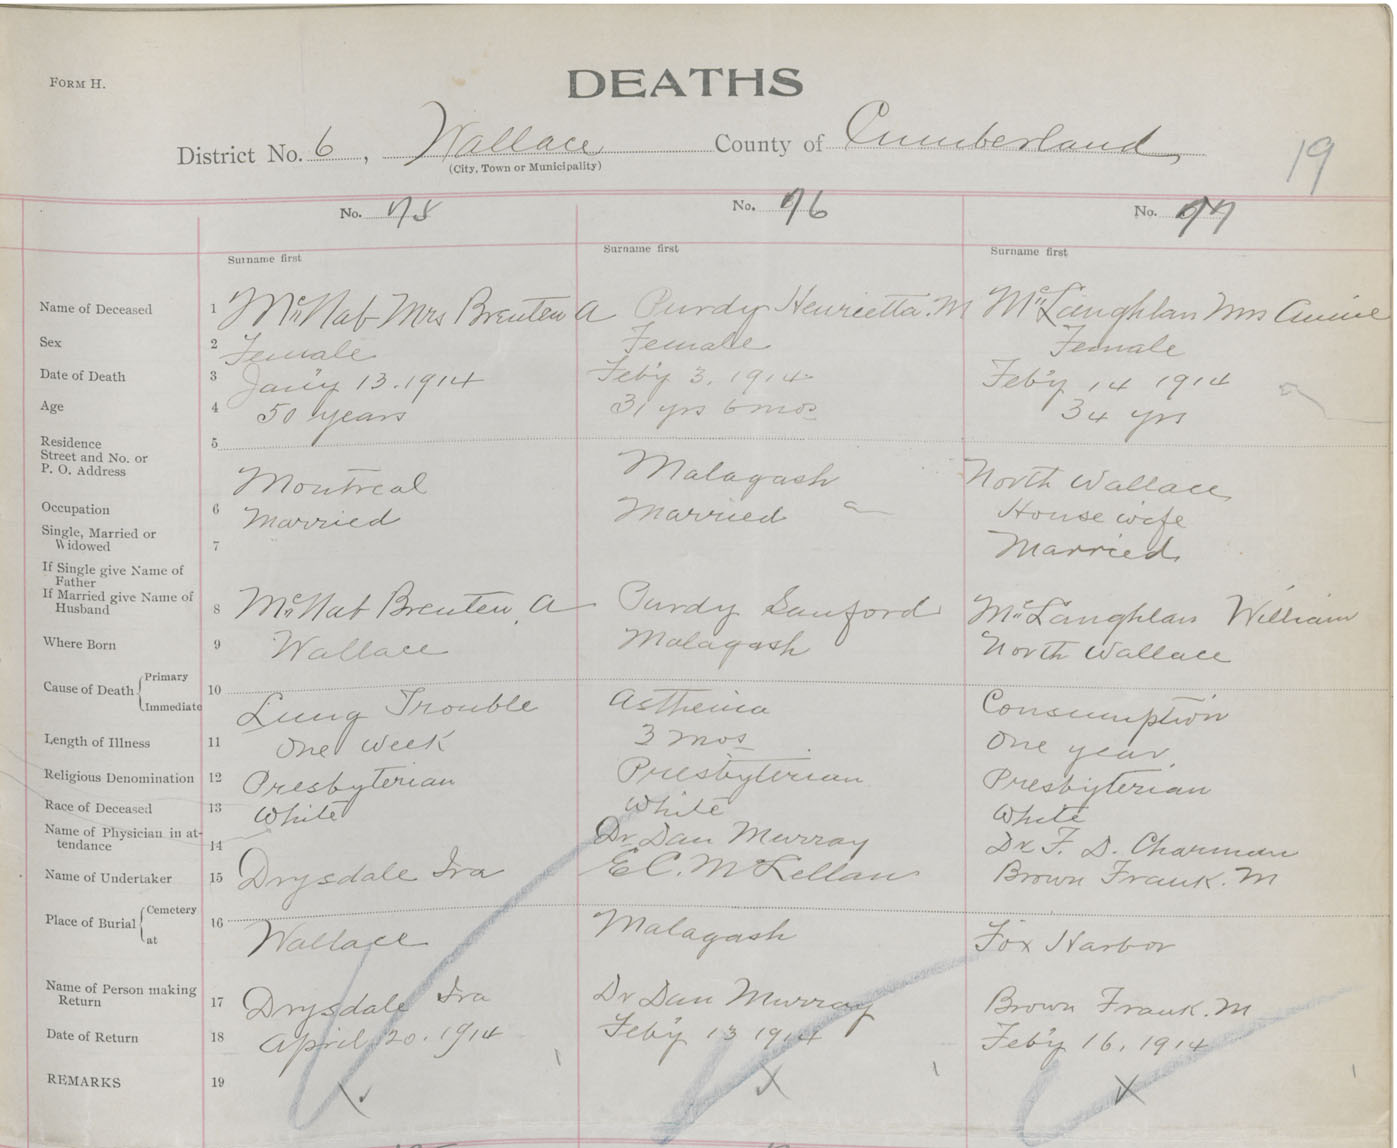 FORM H.
DEATHS
19
District No. 6, Wallace County of Cumberland
(City, Town or Municipality)
No. 75 No. 76 No. 77
Surname first Surname first Surname first
Name of Deceased 1 McNab Mrs Brenten A Purdy Henrietta. M McLaughlan Mrs Annie
Sex 2 Female Female Female
Date of Death 3 Jan'y 13. 1914 Feb'y 3, 1914 Feb'y 14 1914
Age 4 50 years 31 yrs 6 mos 34 yrs
Residence 5
Street and No. or
P. O. Address Montreal Malagash North Wallace
Occupation 6 Married Married House wife
Single, Married or
Widowed 7 Married
If Single give Name of
Father
If Married give Name of
Husband 8 McNab Brenten. A Purdy Sanford McLaughlan William
Where Born 9 Wallace Malagash North Wallace
Cause of Death { Primary 10
Immediate Lung Trouble Asthenia Consumption
Length of Illness 11 One week 3 mos One year
Religious Denomination 12 Presbyterian Presbyterian Presbyterian
Race of Deceased 13 White White White
Name of Physician in at-
tendance 14 Dr Dan Murray Dr F. D. Charman
Name of Undertaker 15 Drysdale Ira E C. McKellan Brown Frank. M
Place of Burial { Cemetery 16
at Wallace Malagash Fox Harbor
Name of Person making
Return 17 Drysdale Ira Dr Dan Murray Brown Frank. M
Date of Return 18 April 20. 1914 Feb'y 13 1914 Feb'y 16, 1914
REMARKS 19 X X X